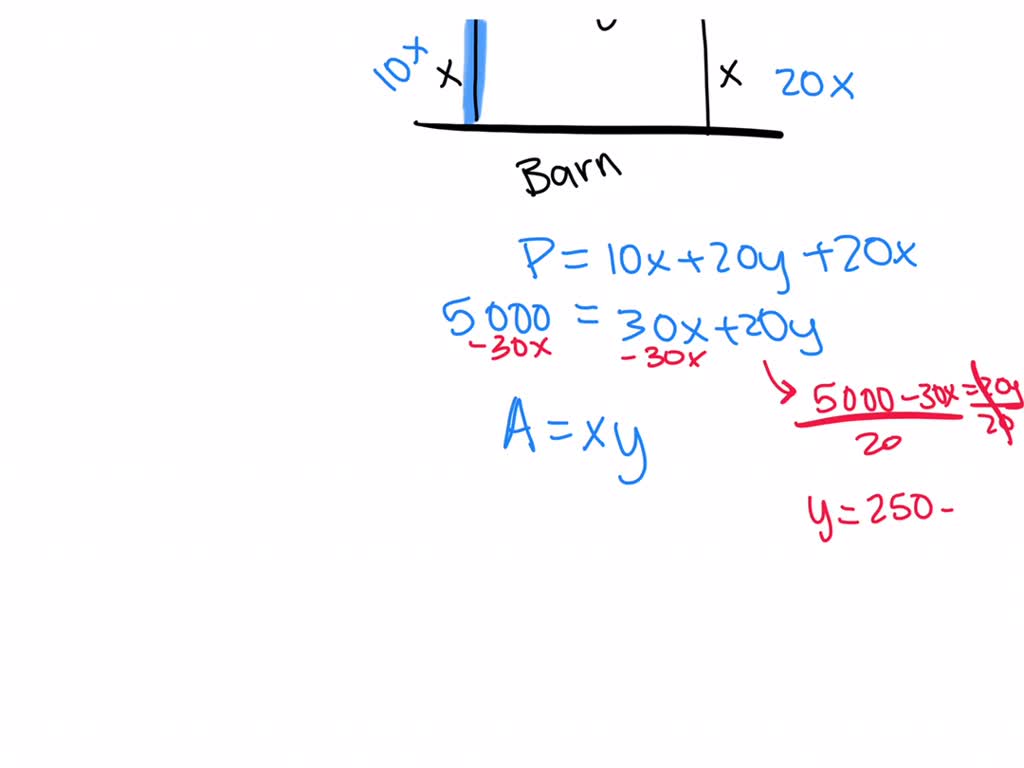 10x x x 20x
Barn
P = 10x + 20y + 20x
5000 = 30x + 20y
-30x -30x
5000 - 30x = 20y
20 20
A = xy
y = 250 -